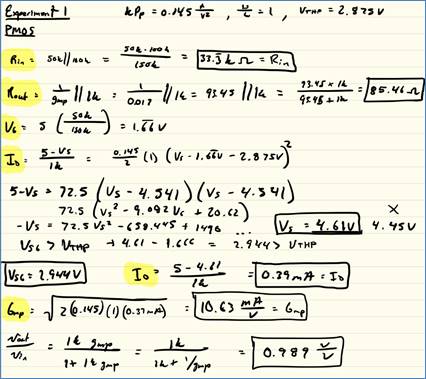 Experiment 1 kPp = 0.145 A/V2 , W/L = 1 , VTHP = 2.875V
PMOS
Rin = 50k//100k = 50k·100k/150k = 33.3k Ω = Rin
Rout = 1/gmp // 1k = 1/0.017 // 1k = 93.45 // 1k = 93.45 × 1k/93.45 + 1k = 85.46 Ω
VG = 5 (50k/150k) = 1.66V
ID = 5-VS/1k = 0.145/2 (1) (VS - 1.66V - 2.875V)²
5-VS = 72.5 (VS - 4.541)(VS - 4.541)
72.5 (VS² - 9.082 VS + 20.62)
-VS = 72.5 VS² - 658.445 + 1490 ... VS = 4.61V 4.45V X
VSG > VTHP → 4.61 - 1.666 = 2.944 > VTHP
VSG = 2.944V ID = 5 - 4.61/1k = 0.39mA = ID
Gmp = √2(0.145)(1)(0.39mA) = 10.63 mA/V = Gmp
Vout/Vin = 1k gmp/1 + 1k gmp = 1k/1k + 1/gmp = 0.989 V/V